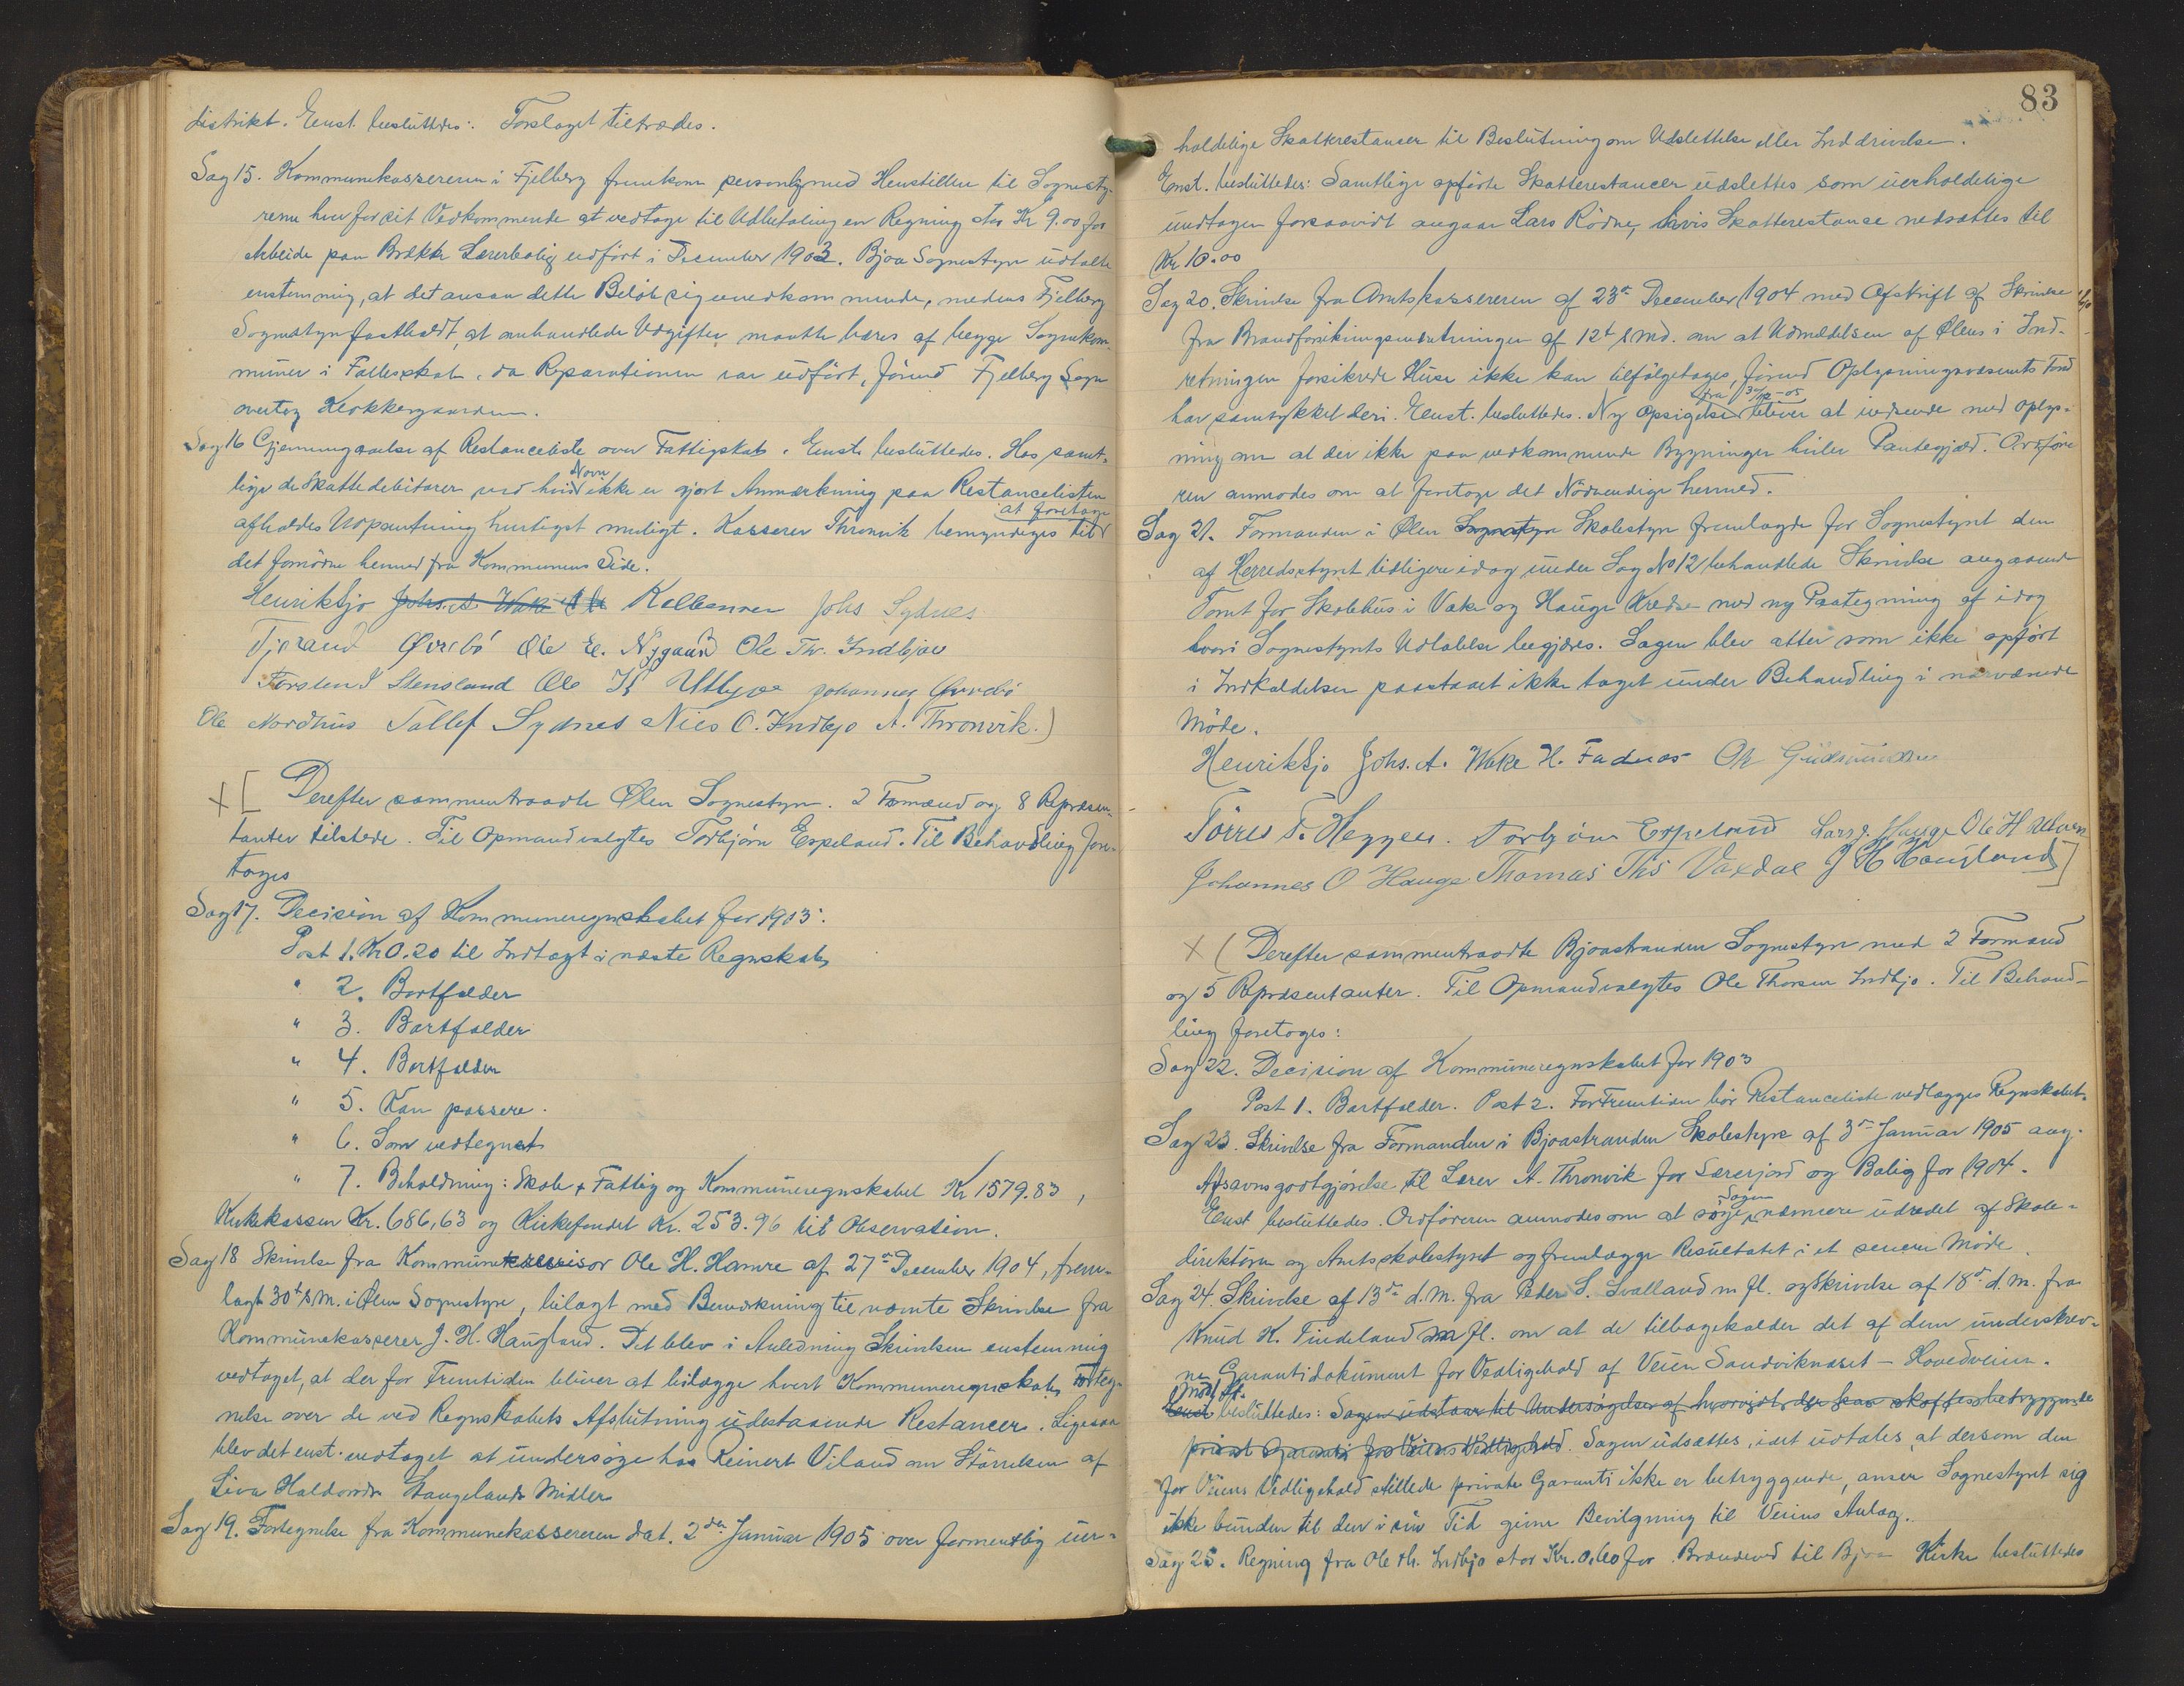 distrikt. Enst. beslüttedes: Forslaget tiltrædes.
Sag 15. Kommunekassereren i Fjelberg fremkom personlig med Henstillen til Sognesty-
rerne hver for sit Vedkommende at vedtage til Udbetaling en Regning stor Kr 9.00 for
Arbeide paa Brække Lærerbolig udført i December 1903. Bjoa Sognestyre üdtalte
enstemmig, at det ansaa dette Beløb sig uvedkommende, medens Fjelberg
Sognestyre fastholdt, at omhandlede Udgifter maatte bæres af begge Sognekom-
müner i Fællesskab, da Reparationen var üdført, førend Fjelberg Sogn
overtog Klokkergaarden.
Sag 16 Gjennemgaaelse af Restanceliste over Fattigskat. Enst. beslüttedes. Hos samt-
lige de Skattedebitorer ved hvis Navn ikke er gjort Anmærkning paa Restancelisten
afholdes Udpantning hurtigst muligt. Kasserer Thronvik bemyndiges til at foretage
det fornødne herved fra Kommunens Side.
Henrik Sjo Johs. A. Wake Kolbensen Johs Sydnes
Tjerand Øvrebö Ole E. Nygaard Ole Th. Indbjoe
Torsten T Stensland Ole K Utbjoe Johannes Øvrebö
Ole Nordhus Tollef Sydnes Nils O. Indbjo A. Thronvik.)
X [ Derefter sammentraadte Ølen Sognestyre. 2 Formænd og 8 Repræsen-
tanter tilstede. Til Opmand valgtes Torbjørn Espeland. Til Behandling fore-
toges
Sag 17. Decision af Kommuneregnskabet for 1903.
Post 1. Kr 0.20 til Indtægt i næste Regnskab
" 2. Bortfalder
" 3. Bortfalder
" 4. Bortfalder
" 5. Kan passere.
" 6. Som vedtegnet
" 7. Beholdning: Skole, Fattig og Kommuneregnskabet Kr 1579.83,
Kirkekassen Kr. 686,63 og Kirkefondet Kr. 253.96 til Observation.
Sag 18 Skrivelse fra Kommunerevisor Ole H. Hamre af 27de December 1904, frem-
lagt 30te s.M. i Ølen Sognestyre, bilagt med Bemærkning til nævnte Skrivelse fra
Kommünekasserer J. H. Haugland. Det blev i Anledning Skrivelsen enstemmig
vedtaget, at der for Fremtiden bliver at bilægge hvert Kommuneregnskab Forteg-
nelse over de ved Regnskabets Afslutning üdestaaende Restancer. Ligesaa
blev det enst. vedtaget at undersøge hos Reinert Viland om Størrelsen af
Siva Haldorsdr Langelands Midler
Sag 19. Fortegnelse fra Kommunekassereren dat. 2den Januar 1905 over formentlig üer-
83
holdelige Skatterestancer til Beslutning om Udslettelse eller Inddrivelse.
Enst. beslüttedes: Samtlige opførte Skatterestancer üdslettes som üerholdelige
undtagen forsaavidt angaar Lars Rödne, hvis Skatterestance nedsættes til
Kr 10.00
Sag 20. Skrivelse fra Amtskassereren af 23de December 1904 med Afskrift af Skrivelse
fra Brandforsikringsindretningen af 12te s.md. om at Udmeldelsen af Ølens i Ind-
retningen forsikrede Huse ikke kan tilfølgetages, førend Oplysningsvæsenets Fond
har samtykket deri. Enst. besluttedes. Ny Opsigelse fra bliver at indsende med Oplys-
ning om at der ikke paa vedkommende Bygninger hviler Pantegjæld. Ordføre
ren anmodes om at foretage det Nödvendige herved.
Sag 21. Formanden i Ølen Sognestyre Skolestyre fremlagde for Sognestyret den
af Herredsstyret tidligere idag ünder Sag No 12 behandlede Skrivelse angaaende
Tomt for Skolehus i Vake og Hauge Kredse med ny Paategning af idag
hvori Sognestyrets Udtalelse begjæres. Sagen blev atter som ikke opført
i Indkaldelsen paastaaet ikke taget ünder Behandling i nærværende
Möde.
Henrik Sjo Johs. A. Wake H. Fadnes Ole Gudmundsen
Törres T. Heggen. Torbjørn Espeland Lars J. Hauge Ole H Ulven
Johannes O Hauge Thomas Ths Vaxdal J H Haugland]
X ( Derefter sammentraadte Bjoastranden Sognestyre med 2 Formænd
og 5 Repræsentanter. Til Opmand valgtes Ole Thorsen Indbjo. Til Behand-
ling foretoges:
Sag 22. Decision af Kommuneregnskabet for 1903
Post 1. Bortfalder. Post 2. For Fremtiden bör Restanceliste vedlægges Regnskabet.
Sag 23. Skrivelse fra Formanden i Bjoastranden Skolestyre af 3die Januar 1905 ang.
Afsavnsgodtgjørelse til Lærer A. Thronvik for Lærerjord og Bolig for 1904.
Enst besluttedes. Ordføreren anmodes om at søge Sagen nærmere udredet af Skole-
direktøren og Amtsskolestyret og fremlægge Resultatet i et senere Möde.
Sag 24. Skrivelse af 13de d.M. fra Peder S. Svalland m fl. og Skrivelse af 18de d.M. fra
Knud K. Tindeland m fl. om at de tilbagekalder det af dem ünderskrev-
ne Garantidokument for Vedligehold af Veien Sandviknæset – Hovedveien.
Mod St.
Enst. beslüttedes: Sagen üdstaar til Undersøgelse af hvorvidt der kan skaffes betryggende
privat Garanti for Veiens Vedligehold. Sagen üdsættes, idet üdtales, at dersom den
for Veiens Vedligehold stillede private Garanti ikke er betryggende, anser Sognestyret sig
ikke bunden til den i sin Tid givne Bevilgning til Veiens Anlæg.
Sag 25. Regning fra Ole Th. Indbjo stor Kr. 0.60 for Brændeved til Bjoa Kirke beslüttedes